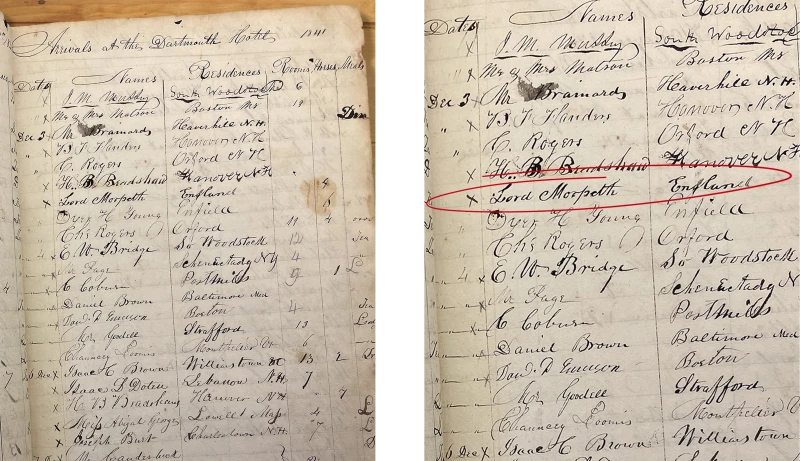 Arrivals at the Dartmouth Hotel 1841
Dates Names Residences Rooms Horses Meals
J. M. South Woodstock 6
Mr & Mrs Matson Boston Ms 14
Dec 3 Mr Bramards Haverhile N.H.
Flanders Hanover N.H
C. Rogers Orford N H
H. B. Bradshaw Hanover N.H
Lord Morpeth England 4
Dyer H Young Enfield
Chs Rogers Orford 11 4
E. W. Bridge So Woodstock 12
Mr Page Schenectady NY
C Coburn Postmills 9 1
Daniel Brown Baltimore Md
Davd. P. Boston 4
Mr Goodell Strafford 13
Chauncey Loomis Montpelier Vt 6
6 Dec Isaac C Brown Williamstown 13 2
Isaac D Lebanon N.H 7
H B Bradshaw Hanover N.H 7
Miss Abigal George Lowell Mass 4
Joseph Burt Charlestown N.H. 7
Names Residences
Dates J. M. South Woodstoc
Mr & Mrs Matson Boston Ms
Dec 3 Mr Bramards Heaverhile N.H.
Flanders Hanover N.H
C. Rogers Orford N H
H. B. Bradshaw Hanover N.H
Lord Morpeth England
Dyer H Young Enfield
Chs Rogers Orford
4 E. W. Bridge So Woodstock
Mr Page Schenectady N
C Coburn Postmills
Daniel Brown Baltimore Md
Davd. P. Boston
Mr Goodell Strafford
Chauncey Loomis Montpelier V
6 Dec Isaac C Brown Williamstown